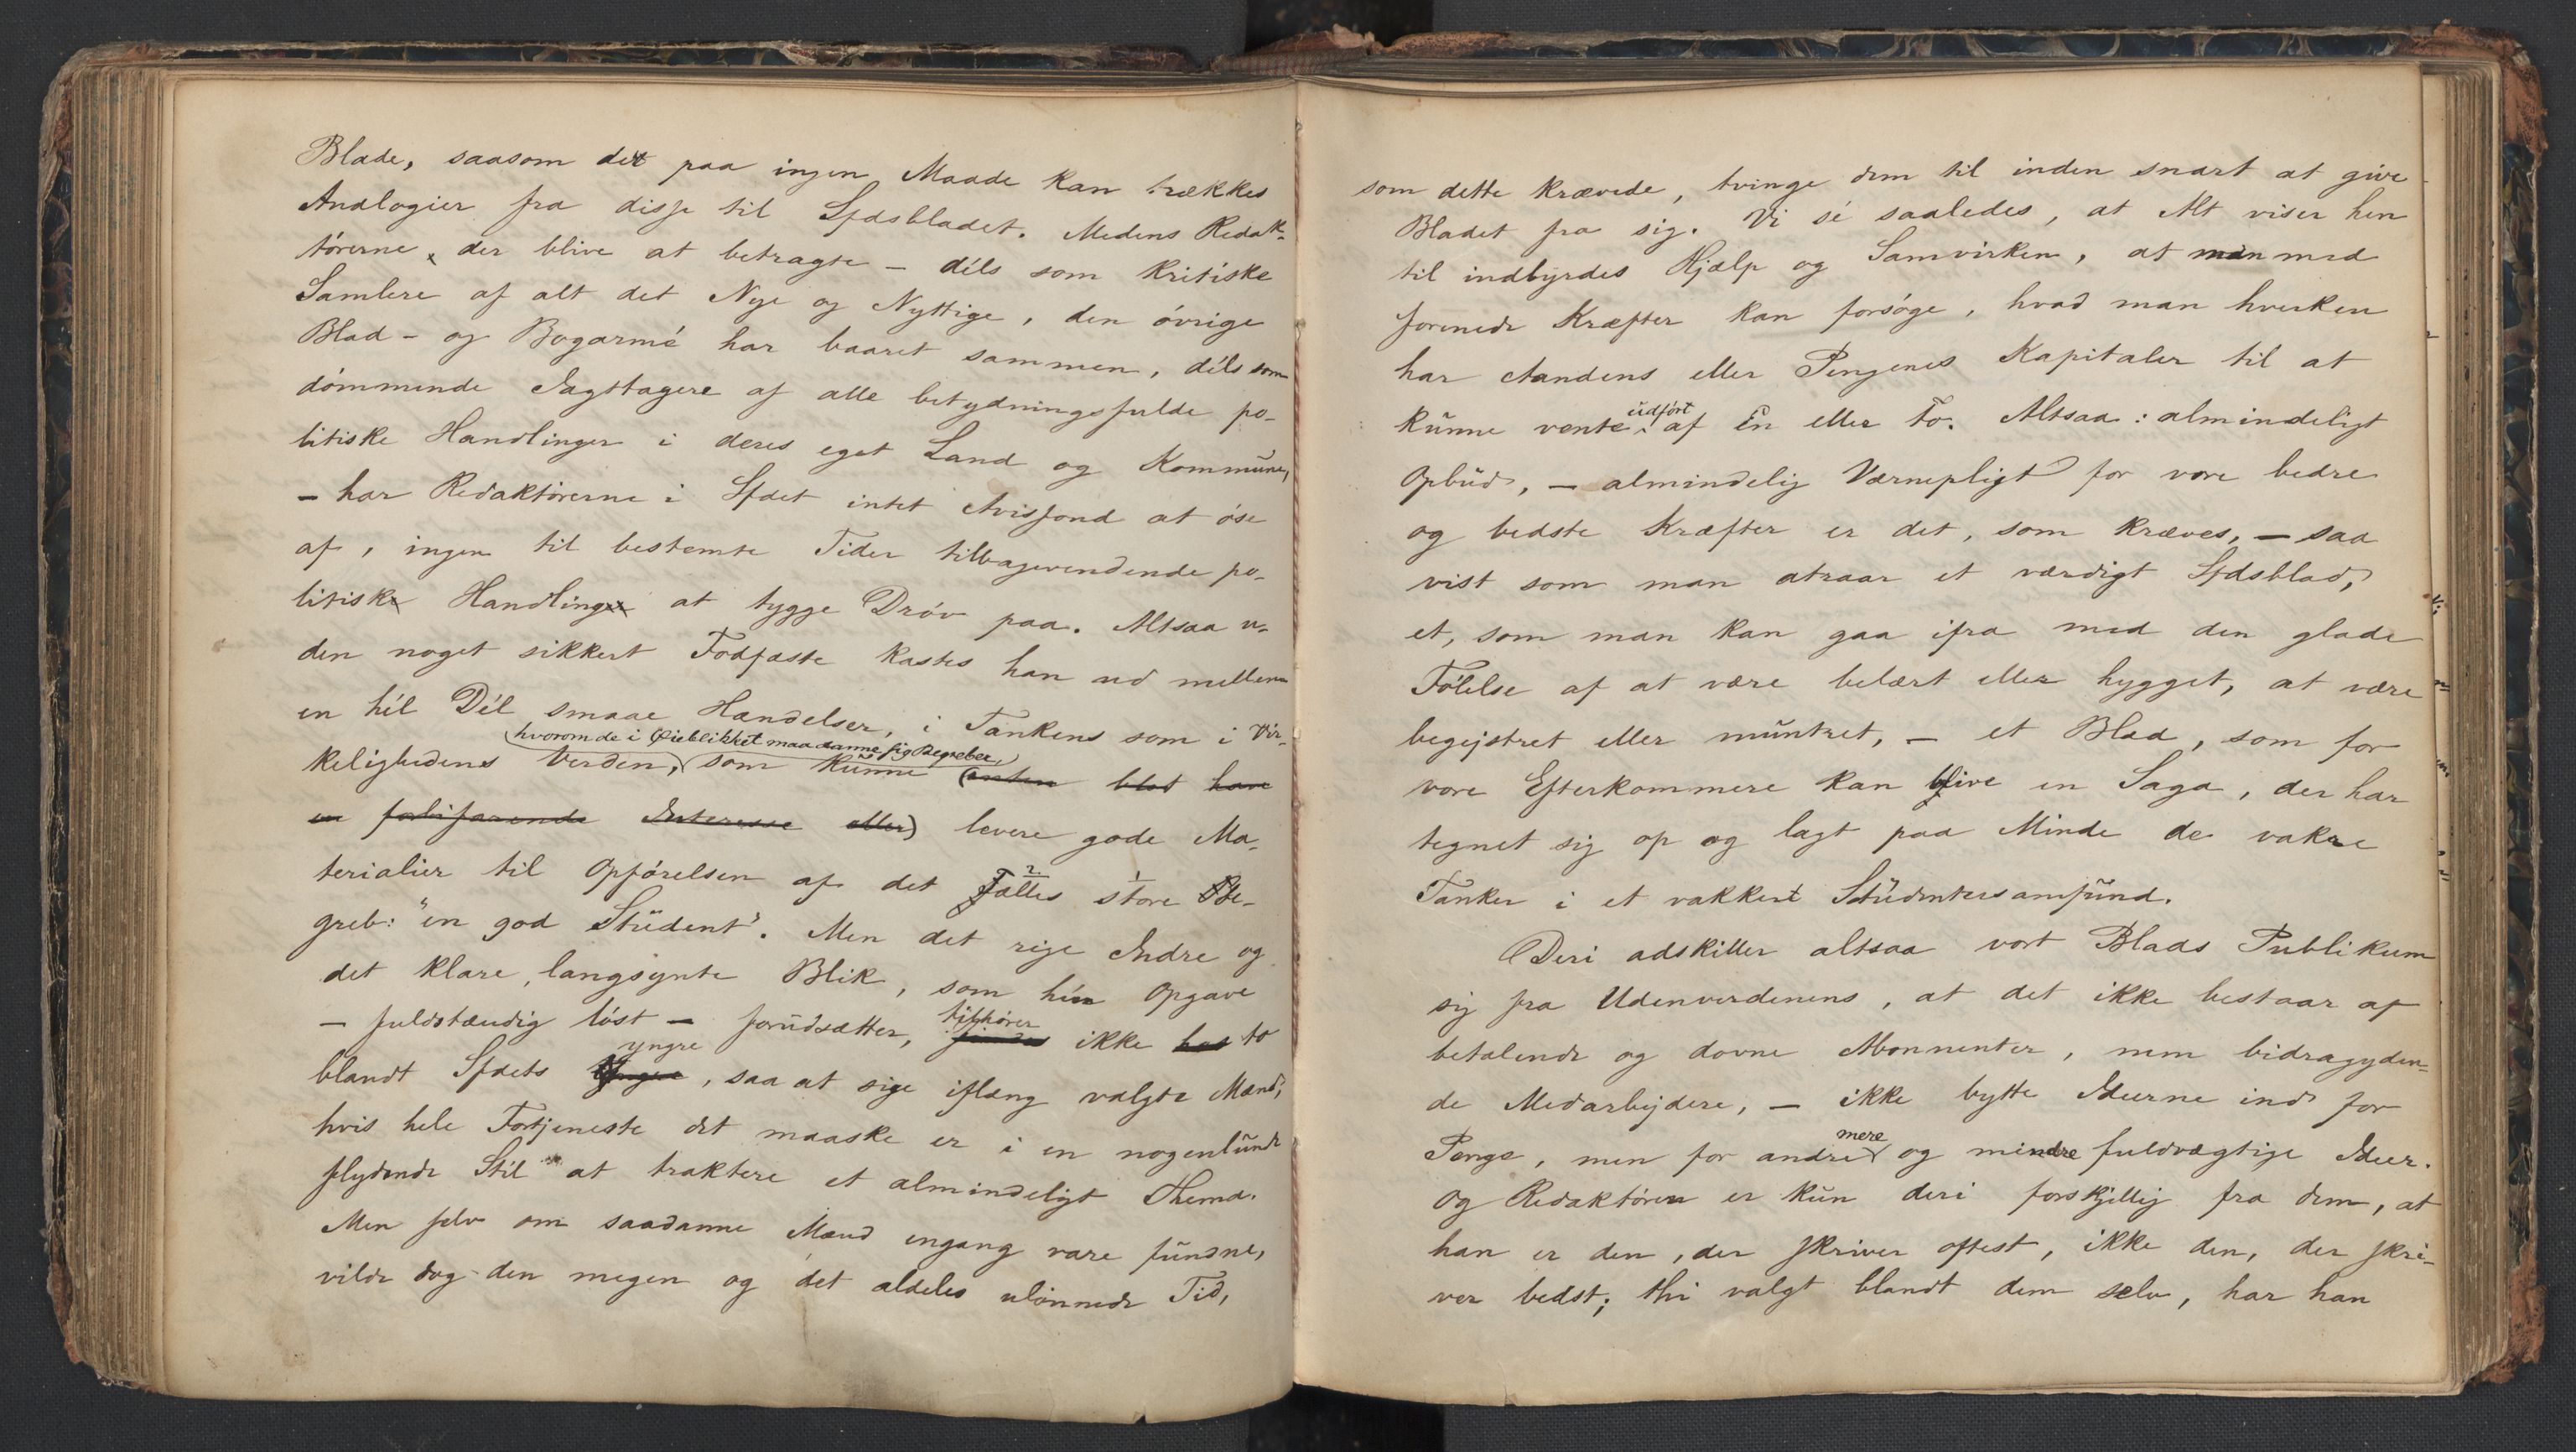 Blade, saasom det paa ingen Maade kan trækkes
Analogier fra disse til Sfdsbladet. Medens Redak-
tørerne, der blive at betragte – déls som kritiske
Samlere af alt det Nye og Nyttige, den øvrige
Blad- og Bogarmé har baaret sammen, déls som
dømmende Iagttagere af alle betydningsfulde po-
litiske Handlinger i deres eget Land og Kommune,
– har Redaktørerne i Sfdet intet Avisfond at øse
af, ingen til bestemte Tider tilbagevendende po-
litisk Handling at tygge Drøv paa. Altsaa u-
den noget sikkert Fodfæste kastes han ud mellem
en hél Dél smaae Hændelser, i Tankens som i Vir-
hvorom de i Øieblikket maa danne sig Begreber,
kelighedens Verden, som kunne (enten blot have
en forbifarende Interesse eller) levere gode Ma-
terialier til Opførelsen af det Fælles store Be-
greb: "en god Student". Men det rige Indre og
det klare, langsynte Blik, som hín Opgave
tilhører
– fuldstændig løst – forudsætter, findes ikke hos to
yngre
blandt Sfdets yngre, saa at sige iflæng valgte Mænd,
hvis hele Fortjeneste det maaske er i en nogenlunde
flydende Stil at traktere et almindeligt Thema.
Men selv om saadanne Mænd engang vare fundne,
vilde dog den megen og det aldeles ulønnede Tid,
som dette krævede, tvinge dem til inden snart at give
Bladet fra sig. Vi sé saaledes, at Alt viser hen
til indbyrdes Hjælp og Samvirken, at man med
forenede Kræfter kan forsøge, hvad man hverken
har Aandens eller Pengenes Kapitaler til at
udført
kunne vente af Én eller To. Altsaa: almindeligt
Opbud, – almindelig Værnepligt for vore bedre
og bedste Kræfter er det, som kræves, – saa
vist som man atraar et værdigt Sfdsblad,
et, som man kan gaa ifra med den glade
Følelse af at være belært eller hygget, at være
begejstret eller muntret, – et Blad, som for
vore Efterkommere kan blive en Saga, der har
tegnet sig op og lagt paa Minde de vakre
Tanker i et vakkert Studentersamfund.
Deri adskiller altsaa vort Blads Publikum
sig fra Udenverdenens, at det ikke bestaar af
betalende og dovne Abonnenter, men bidragyden-
de Medarbejdere, – ikke bytte Ideerne ind for
mere
Penge, men for andre og mindre fuldvægtige Ideer.
Og Redaktøren er kun deri forskjellig fra dem, at
han er den, der skriver oftest, ikke den, der skri-
ver bedst; thi valgt blandt dem selv, har han